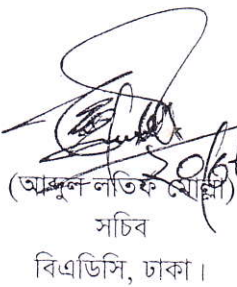 (আব্দুল লতিফ মোল্লা)
সচিব
বিএডিসি, ঢাকা।